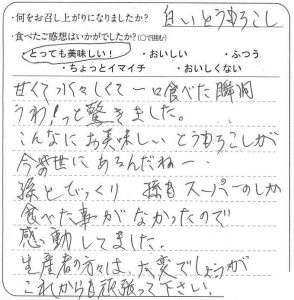 ・何をお召し上がりになりましたか? 白いとうもろこし
・食べたご感想はいかがでしたか?(○で囲む)
・とっても美味しい! ・おいしい ・ふつう
・ちょっとイマイチ ・おいしくない
甘くてみずみずしくて一口食べた瞬間
うわ!っと驚きました。
こんなにお美味しいとうもろこしが
今の世にあるんだねー
孫とびっくり 孫もスーパーのしか
食べた事がなかったので
感動してました。
生産者の方々は、大変でしょうが
これからも頑張って下さい。